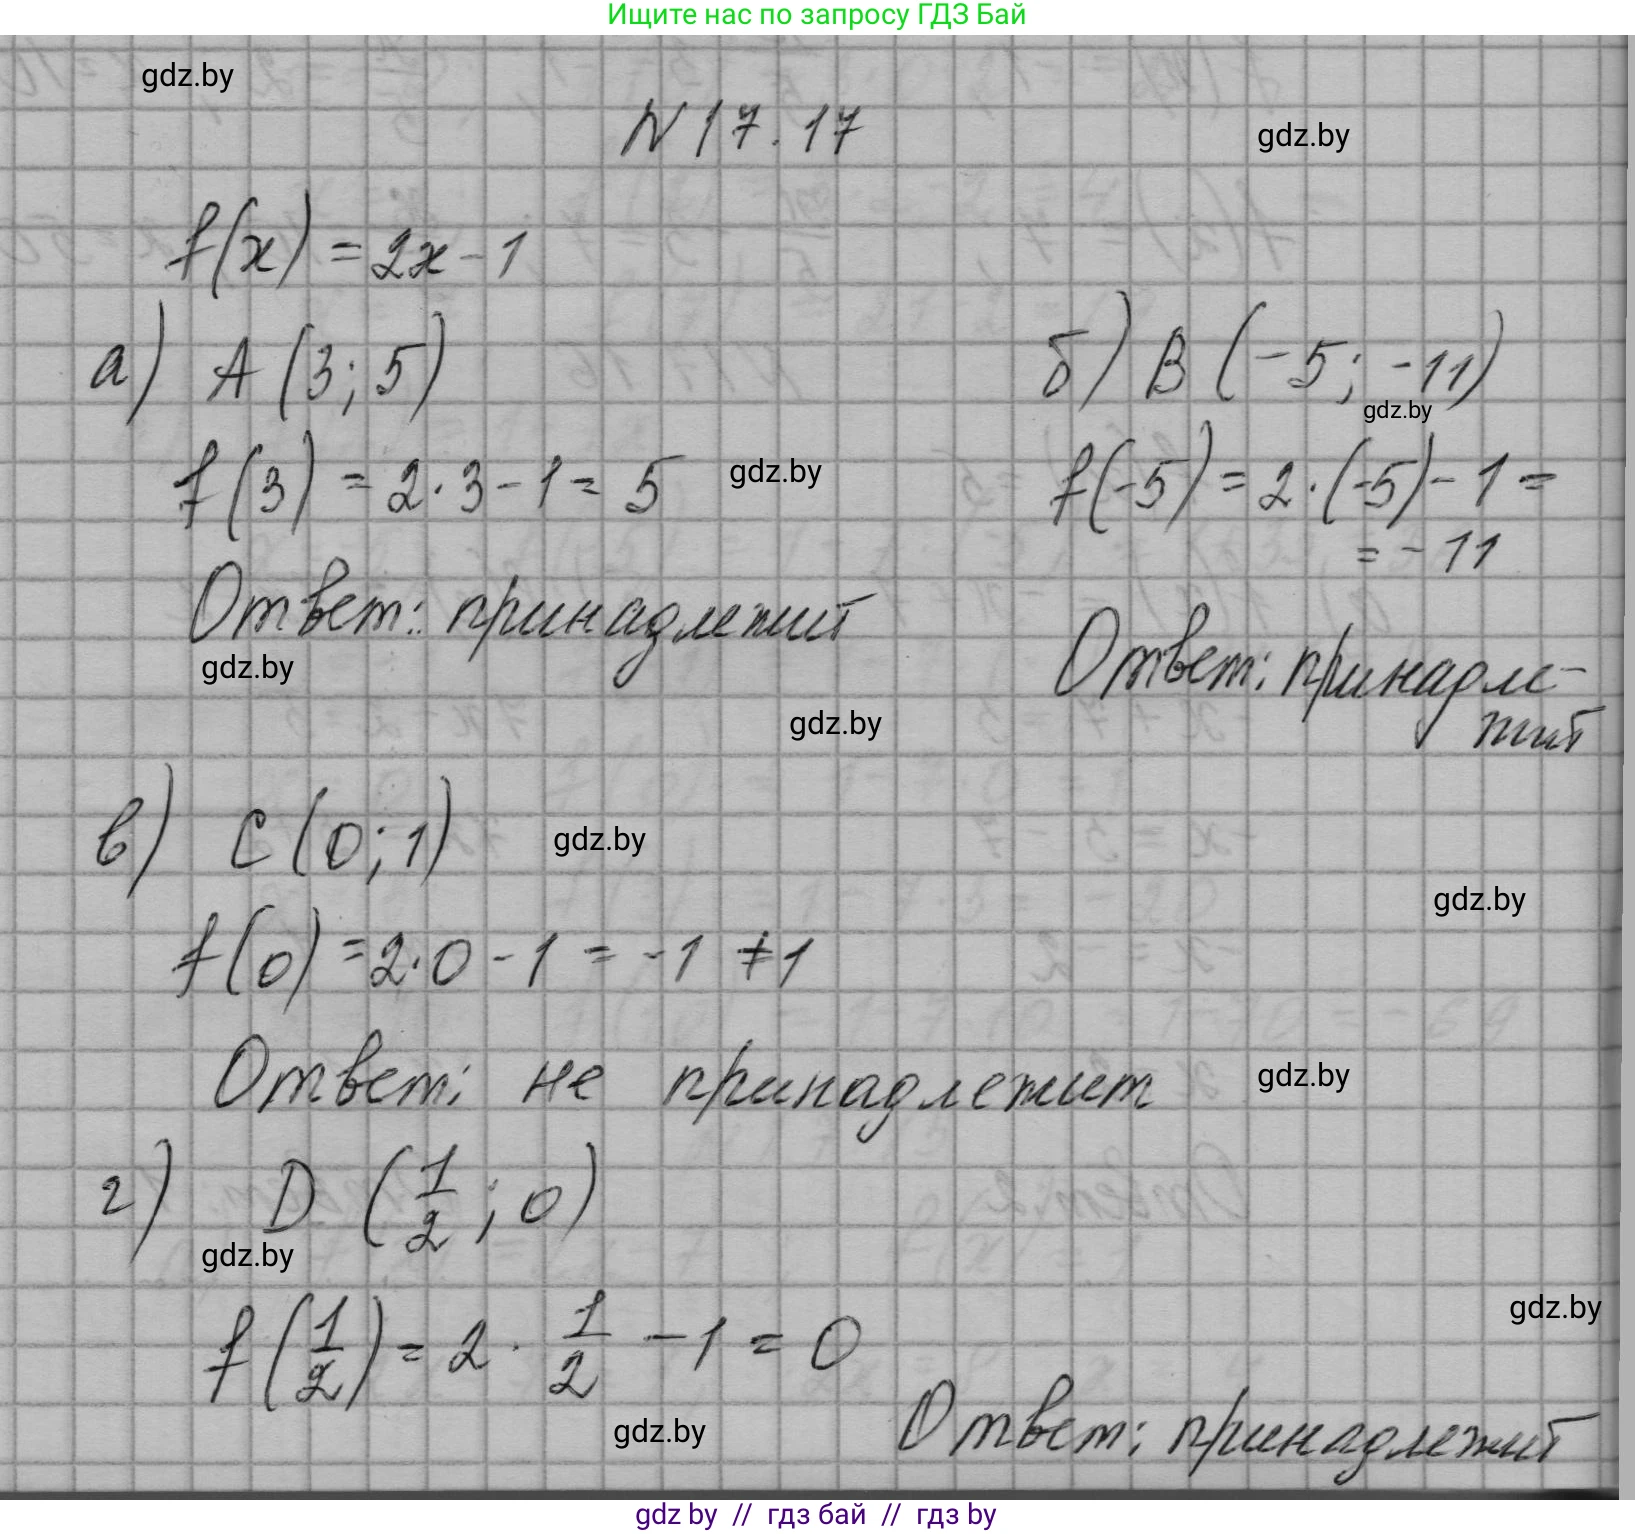 Ищите нас по запросу ГДЗ Бай
gdz.by
N 17.17
gdz.by
f(x) = 2x - 1
а) A (3; 5)
f(3) = 2·3 - 1 = 5
gdz.by
Ответ: принадлежит
gdz.by
б) B (-5; -11)
gdz.by
f(-5) = 2·(-5) - 1 =
= -11
Ответ: принадле-
жит
gdz.by
в) C (0; 1)
gdz.by
gdz.by
f(0) = 2·0 - 1 = -1 ≠ 1
Ответ: не принадлежит
gdz.by
г) D (1/2; 0)
gdz.by
gdz.by
f(1/2) = 2 · 1/2 - 1 = 0
gdz.by
Ответ: принадлежит
gdz by // гдз бай // гдз by